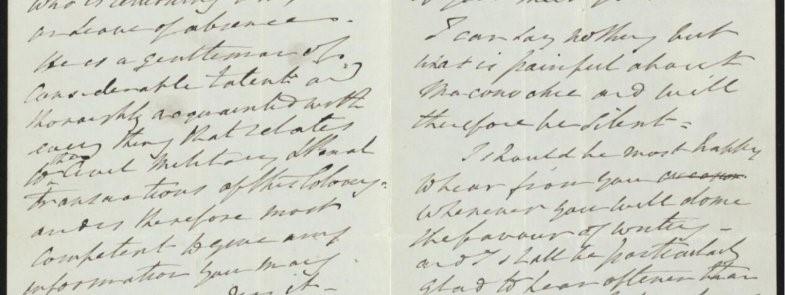 who is returning
on leave of absence -
He is a gentleman of
considerable talent and
thoroughly acquainted with
every thing that relates
to the Civil Military & Penal
transactions of this Colony -
and is therefore most
competent to give any
information you may
it -
I can say nothing but
what is painful about
Maconochie and will
therefore be silent -
I should be most happy
to hear from you
whenever you will do me
the favour of writing -
and I shall be particularly
glad to hear oftener than